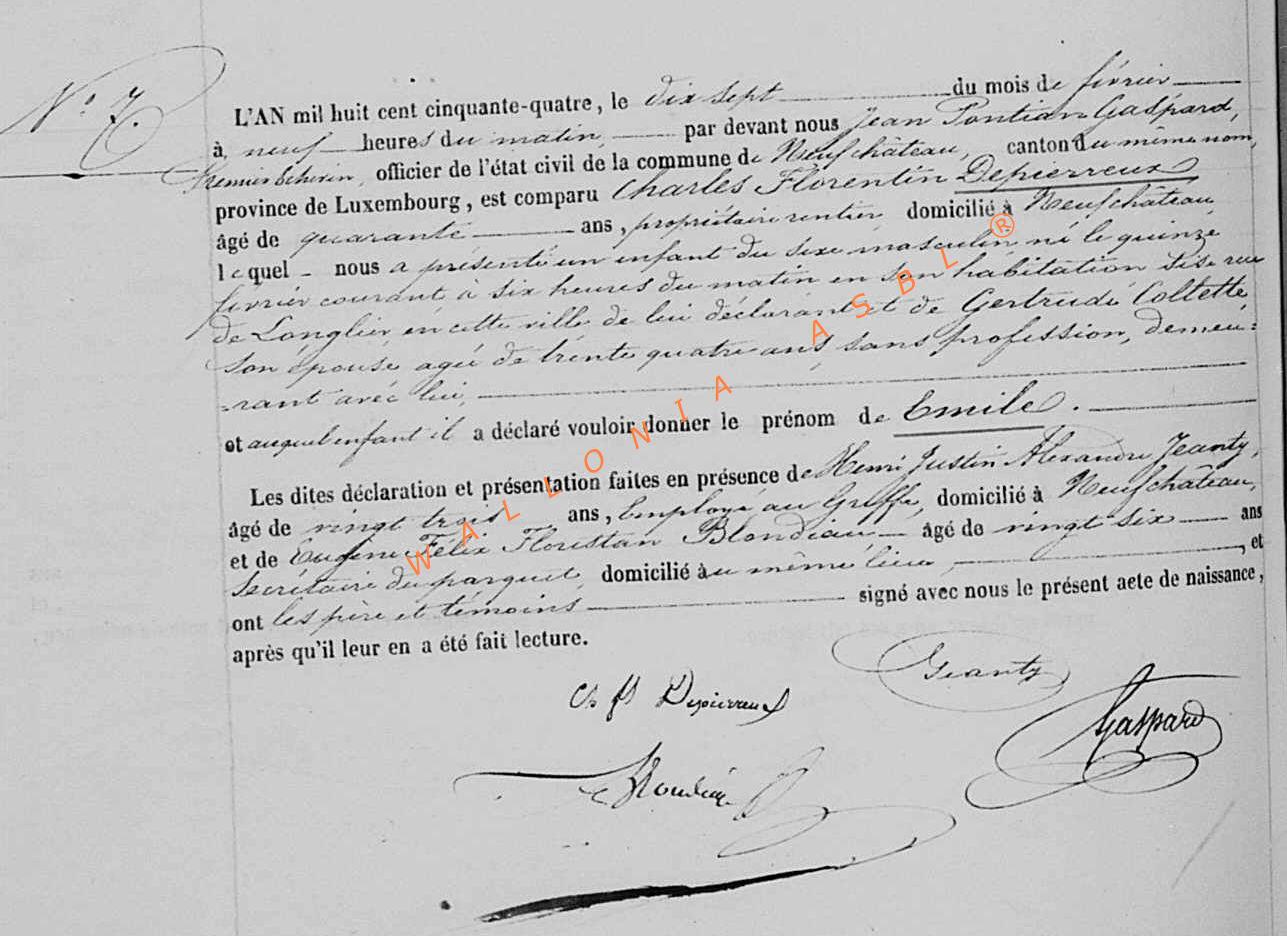 N° 7.
L'AN mil huit cent cinquante-quatre, le dix sept du mois de février
à neuf heures du matin, par devant nous Jean Pontian Gaspard,
premier Echevin, officier de l'état civil de la commune de Neufchâteau, canton du même nom,
province de Luxembourg, est comparu Charles Florentin Depierreux
âgé de quarante ans, propriétaire rentier domicilié à Neufchâteau
lequel nous a présenté un enfant du sexe masculin né le quinze
février courant à six heures du matin en son habitation sise rue
de Longlier, en cette ville de lui déclarant et de Gertrude Collette
son épouse agée de trente quatre ans, sans profession, demeu=
=rant avec lui,
et auquel enfant il a déclaré vouloir donner le prénom de Emile.
Les dites déclaration et présentation faites en présence de Henri Justin Alexandre Jeanty,
âgé de vingt trois ans, Employé au Greffe, domicilié à Neufchâteau,
et de Eugène Félix Floristan Blondiau âgé de vingt six ans
Secrétaire du parquet, domicilié au même lieu, , et
ont les père et témoins signé avec nous le présent acte de naissance,
après qu'il leur en a été fait lecture.
Jeanty
Ch fl Depierreux
Gaspard
Blondiau
WALLONIA ASBL ®